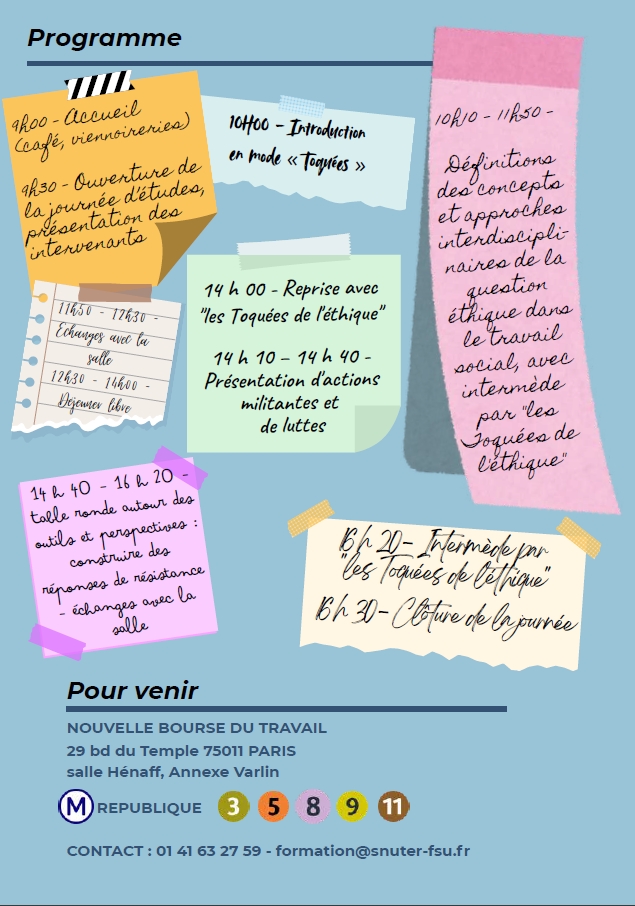 Programme
9h00 - Accueil
(café, viennoireries)
9h30 - Ouverture de
la journée d'études,
présentation des
intervenants
10H00 - Introduction
en mode « Toquées »
10h10 - 11h50 -
Définitions
des concepts
et approches
interdiscipli-
naires de la
question
éthique dans
le travail
social, avec
intermède
par "les
Toquées de
l'éthique"
11h50 - 12h30 -
Echanges avec la
salle
12h30 - 14h00 -
Déjeuner libre
14 h 00 - Reprise avec
"les Toquées de l'éthique"
14 h 10 – 14 h 40 -
Présentation d'actions
militantes et
de luttes
14 h 40 - 16 h 20 -
table ronde autour des
outils et perspectives :
construire des
réponses de résistance
- échanges avec la
salle
16 h 20 - Intermède par
"les Toquées de l'éthique"
16 h 30 - Clôture de la journée
Pour venir
NOUVELLE BOURSE DU TRAVAIL
29 bd du Temple 75011 PARIS
salle Hénaff, Annexe Varlin
M REPUBLIQUE 3 5 8 9 11
CONTACT : 01 41 63 27 59 - formation@snuter-fsu.fr